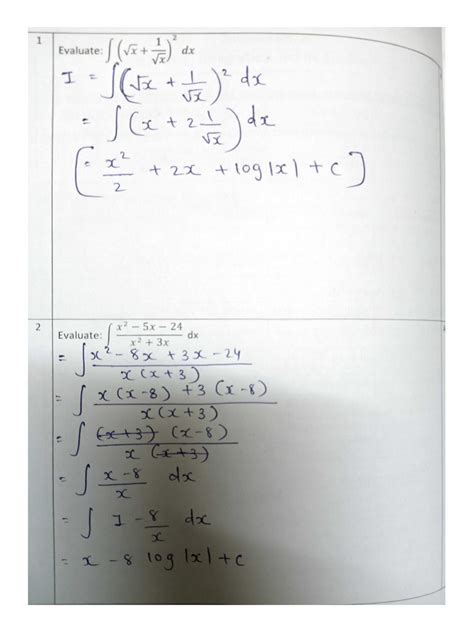 1
Evaluate: ∫(√x + 1/√x)² dx
I = ∫(√x + 1/√x)² dx
= ∫(x + 2 1/√x) dx
[= x²/2 + 2x + log|x| + c]
2
Evaluate: ∫ (x² − 5x − 24)/(x² + 3x) dx
= ∫ (x² − 8x + 3x − 24)/(x(x+3))
= ∫ (x(x−8) + 3(x−8))/(x(x+3))
= ∫ ((x+3)(x−8))/(x(x+3))
= ∫ (x−8)/x dx
= ∫ 1 − 8/x dx
= x − 8 log|x| + c